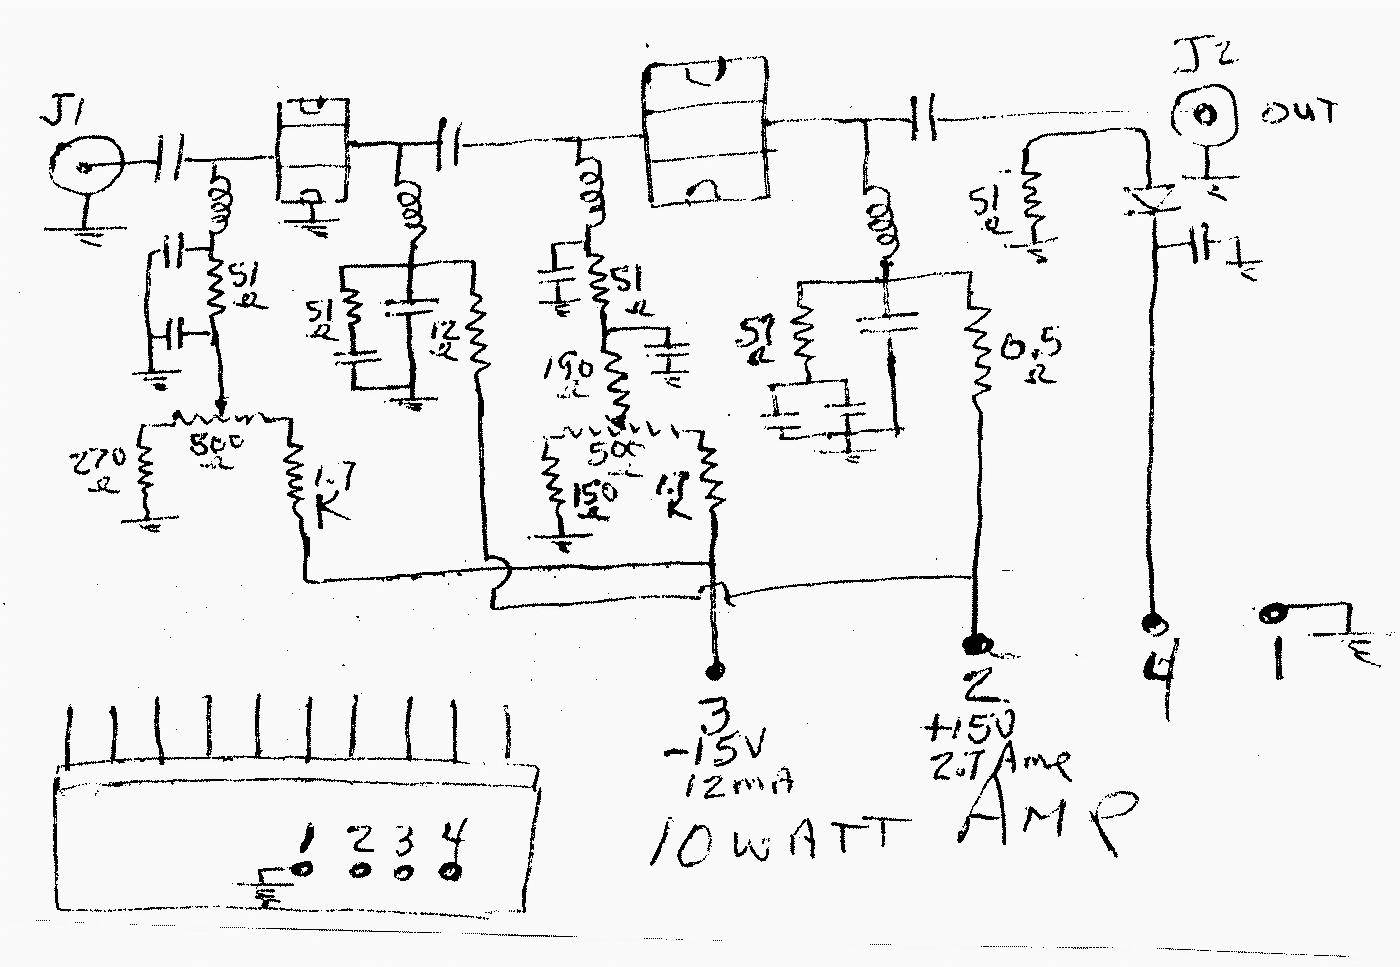 J1
J2
OUT
51
Ω
51
Ω
12
Ω
51
Ω
190
Ω
51
Ω
0.5
Ω
51
Ω
270
Ω
500
Ω
1.7
K
500
Ω
150
Ω
1.7
K
3
-15V
12mA
2
+15V
2.7 Amp
4
1
10 WATT AMP
1 2 3 4